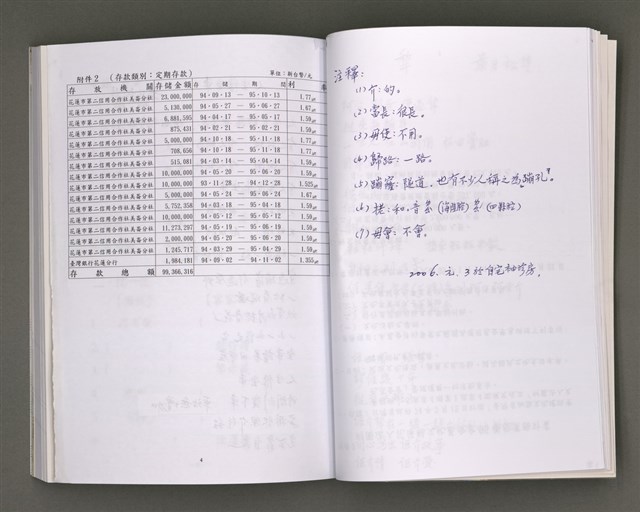 附件2 (存款類別:定期存款) 單位:新台幣/元
存放機關 存儲金額 存儲期間 利率
花蓮市第二信用合作社美崙分社 23,000,000 94·09·13 — 95·10·13 1.77
花蓮市第二信用合作社美崙分社 5,130,000 94·05·27 — 95·06·27 1.67
花蓮市第二信用合作社美崙分社 6,881,505 94·04·17 — 95·05·17 1.59
花蓮市第二信用合作社美崙分社 875,431 94·02·21 — 95·02·21 1.59
花蓮市第二信用合作社美崙分社 5,000,000 94·10·18 — 95·11·18 1.77
花蓮市第二信用合作社美崙分社 708,656 94·10·18 — 95·11·18 1.77
花蓮市第二信用合作社美崙分社 515,081 94·03·14 — 95·04·14 1.59
花蓮市第二信用合作社美崙分社 10,000,000 94·05·20 — 95·06·20 1.59
花蓮市第二信用合作社美崙分社 18,000,000 93·11·28 — 94·12·28 1.525
花蓮市第二信用合作社美崙分社 5,000,000 94·05·24 — 95·06·24 1.67
花蓮市第二信用合作社美崙分社 5,752,358 94·03·18 — 95·04·18 1.59
花蓮市第二信用合作社美崙分社 10,000,000 94·05·12 — 95·05·12 1.59
花蓮市第二信用合作社美崙分社 11,273,297 94·05·19 — 95·06·19 1.59
花蓮市第二信用合作社美崙分社 2,000,000 94·05·20 — 95·05·20 1.59
花蓮市第二信用合作社美崙分社 1,245,717 94·03·29 — 95·04·29 1.59
臺灣銀行花蓮分行 1,984,181 94·09·02 — 94·11·02 1.355
存款總額 99,366,316
4
註釋:
(1) 个:的。
(2) 當長:很長。
(3) 毋使:不用。
(4) 歸路:一路。
(5) 隧道,也有不少人稱之為
(6) 和。音 (海陸腔) (四縣腔)
(7) 毋會:不會。
2006.元.3 於自宅